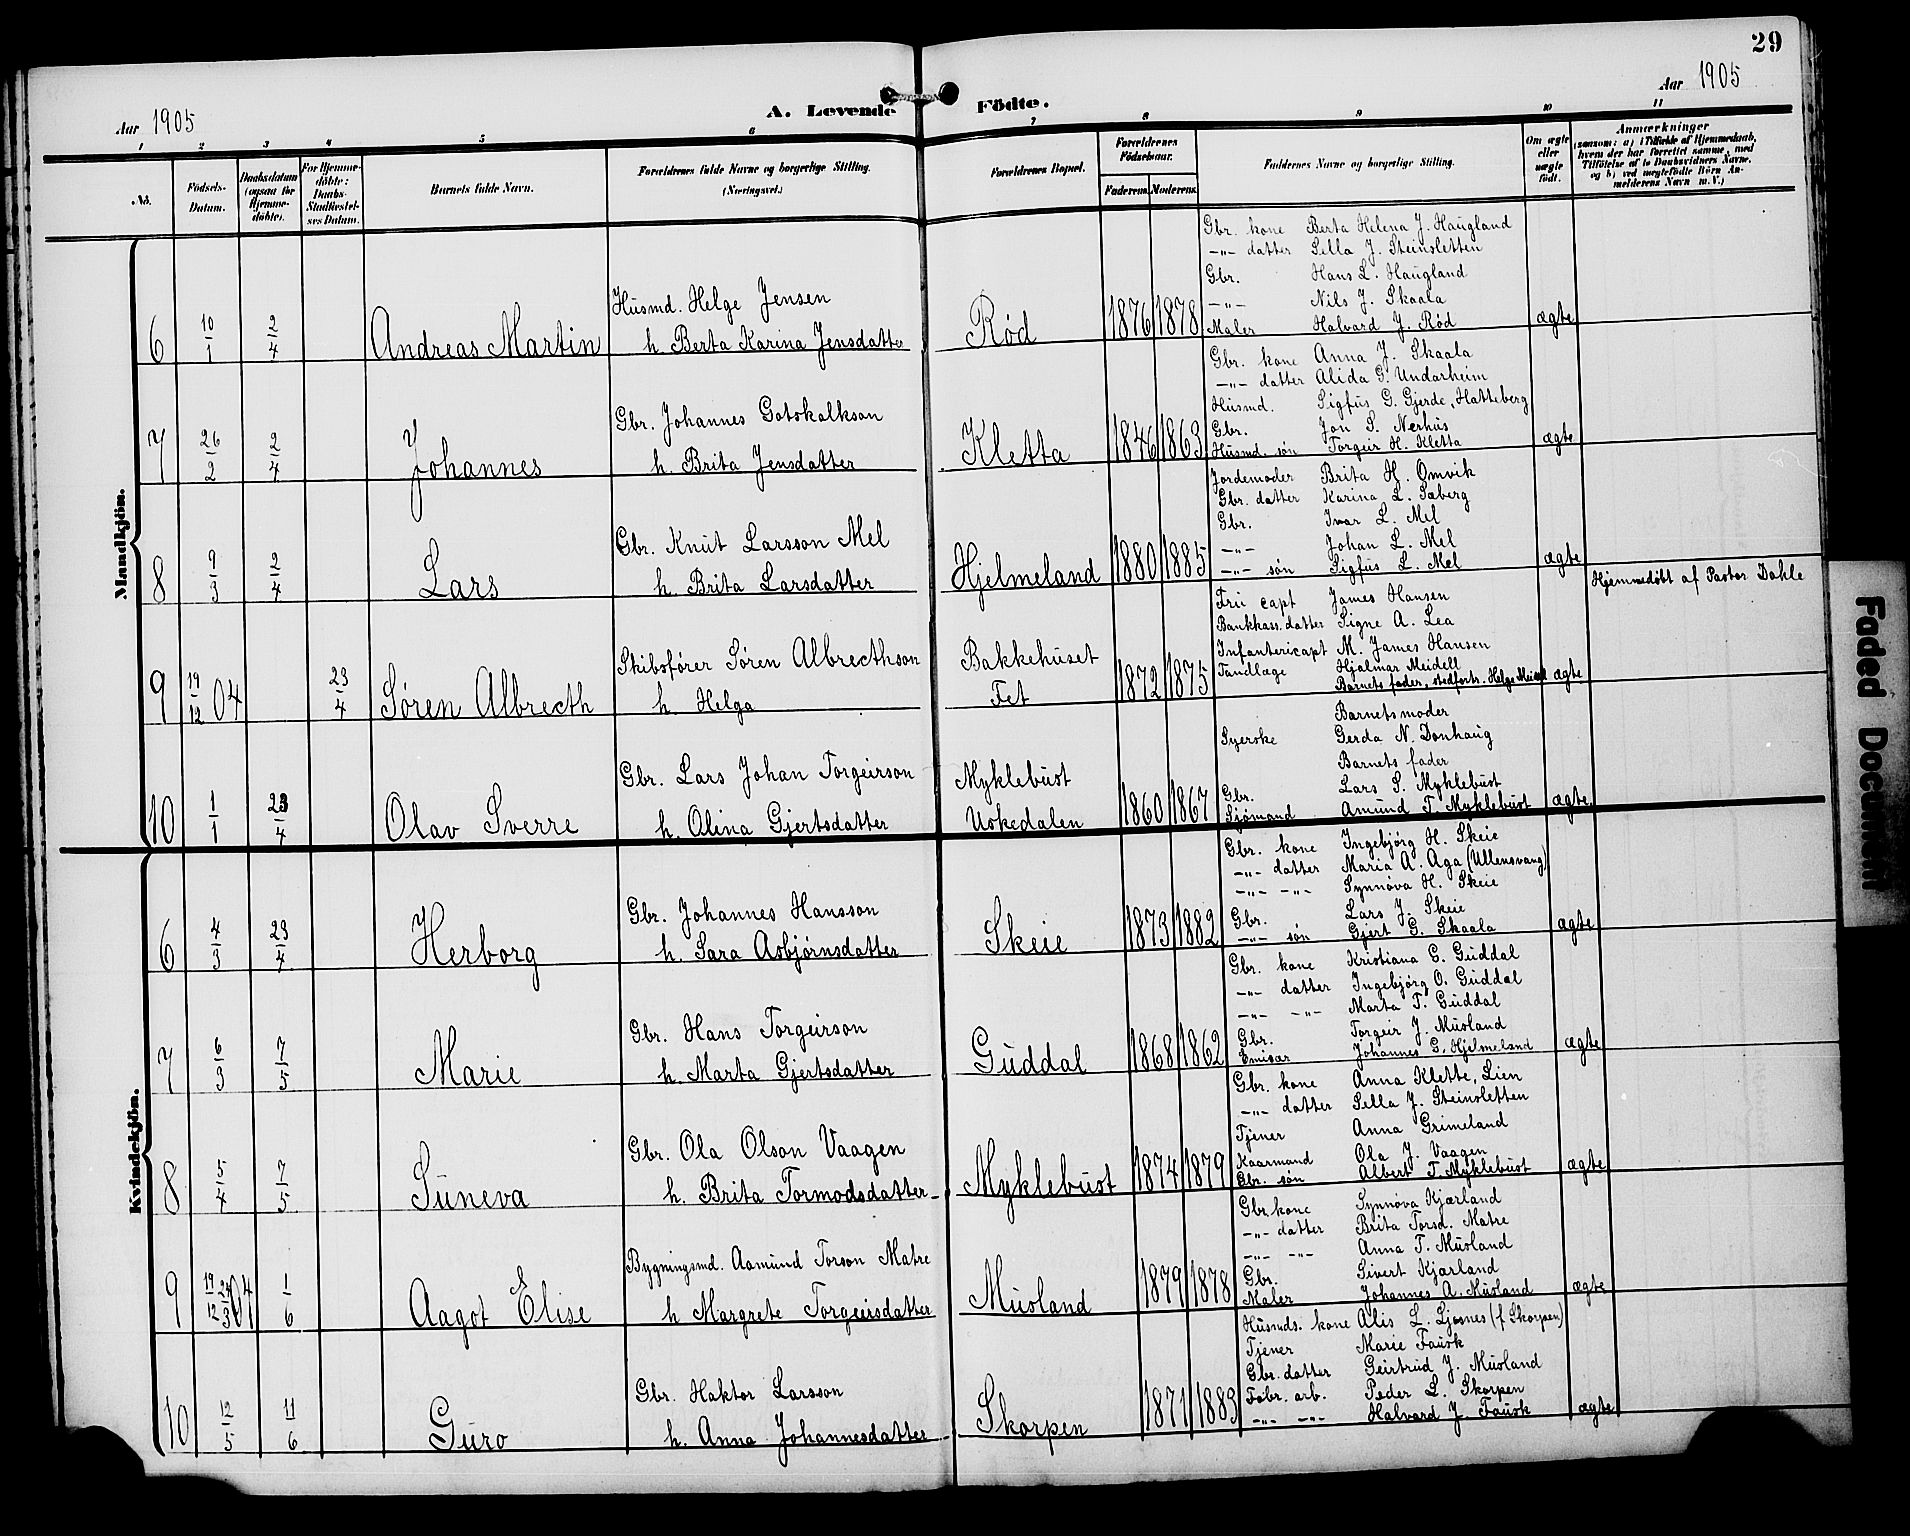 29
Aar 1905
Aar 1905
A. Levende Födte.
1 2 3 4 5 6 7 8 9 10 11
No.
Födsels-Datum.
Daabsdatum (ogsaa for Hjemmedöbte).
For Hjemmedöbte: Daabs-Stadfæstelses Datum.
Barnets fulde Navn.
Forældrenes fulde Navne og borgerlige Stilling. (Næringsvei.)
Forældrenes Bopæl.
Forældrenes Födselsaar.
Faderens. Moderens.
Faddernes Navne og borgerlige Stilling.
Om ægte eller uægte födt.
Anmærkninger (saasom: a) i Tilfælde af Hjemmedaab, hvem der har forrettet samme, med Tilföielse af to Daabsvidners Navne, og b) ved uægtefödte Börn Anmelderens Navn m. V.)
Mandkjön.
6 10/1 2/4 Andreas Martin
Husmd. Helge Jensen
h. Berta Karina Jensdatter
Rød 1876 1878
Gbr. kone Berta Helena J. Haugland
-"- datter Sella J. Steinsletten
Gbr. Hans L. Haugland
-"- Nils J. Skaala
Maler Halvard J. Rød
ægte
7 26/2 2/4 Johannes
Gbr. Johannes Gotskalkson
h. Brita Jensdatter
Kletta 1846 1863
Gbr. kone Anna J. Skaala
-"- datter Alida G. Undarheim
Husmd. Sigfus G. Gjerde, Hatteberg
Gbr. Jon S. Nerhus
Husmd. søn Torgeir H. Kletta
ægte
8 9/3 2/4 Lars
Gbr. Knut Larsson Mel
h. Brita Larsdatter
Hjelmeland 1880 1885
Jordemoder Brita H. Omvik
Gbr. datter Karina L. Sæberg
Gbr. Ivar L. Mel
-"- Johan L. Mel
-"- søn Sigfus L. Mel
ægte
9 19/12 04 23/4 Søren Albrecth
Skibsfører Søren Albrecthson
h. Helga
Bakkehuset
Fet 1872 1875
Fru capt James Hansen
Bankkass. datter Signe A. Lea
Infantericapt M. James Hansen
Tandlæge Hjalmar Meidell
Barnets fader, stedfortr. Helge Meidell
ægte
Hjemmedöbt af Pastor Dahle
10 1/1 23/4 Olav Sverre
Gbr. Lars Johan Torgeirson
h. Olina Gjertsdatter
Myklebust
Uskedalen 1860 1867
Barnets moder
Syerske Gerda N. Donhaug
Barnets fader
Gbr. Lars S. Myklebust
Sjømand Amund T. Myklebust
ægte
Kvindekjön.
6 4/3 23/4 Herborg
Gbr. Johannes Hansson
h. Sara Asbjørnsdatter
Skeie 1873 1882
Gbr. kone Ingebjørg H. Skeie
-"- datter Maria A. Aga (Ullensvang)
-"- -"- Synnøva H. Skeie
Gbr. Lars J. Skeie
-"- søn Gjert G. Skaala
ægte
7 6/3 7/5 Marie
Gbr. Hans Torgeirson
h. Marta Gjertsdatter
Guddal 1868 1862
Gbr. kone Kristiana G. Guddal
-"- datter Ingebjørg O. Guddal
-"- -"- Marta T. Guddal
Gbr. Torgeir J. Musland
Emisær Johannes G. Hjelmeland
ægte
8 5/4 7/5 Suneva
Gbr. Ola Olson Vaagen
h. Brita Tormodsdatter
Myklebust 1874 1879
Gbr. kone Anna Klette, Lien
-"- datter Sella J. Steinsletten
Tjener Anna Grimeland
Kaarmand Ola J. Vaagen
Gbr. søn Albert T. Myklebust
ægte
9 19/12 04 24/3 1/6 Aagot Elise
Bygningsmd. Aamund Torson Matre
h Margrete Torgeirsdatter
Musland 1879 1878
Gbr. kone Synnøva Kjærland
-"- datter Brita Torsd. Matre
-"- -"- Anna T. Musland
Gbr. Sivert Kjærland
Maler Johannes A. Musland
ægte
10 12/5 11/6 Guro
Gbr. Haktor Larsson
h. Anna Johannesdatter
Skorpen 1871 1883
Husmds. kone Alis L. Ljosnes (f. Skorpen)
Tjener Marie Fausk
Gbr. datter Geirtrud J. Musland
Fabr. arb. Peder L. Skorpen
-"- -"- Halvard J. Fausk
ægte
Faded Document